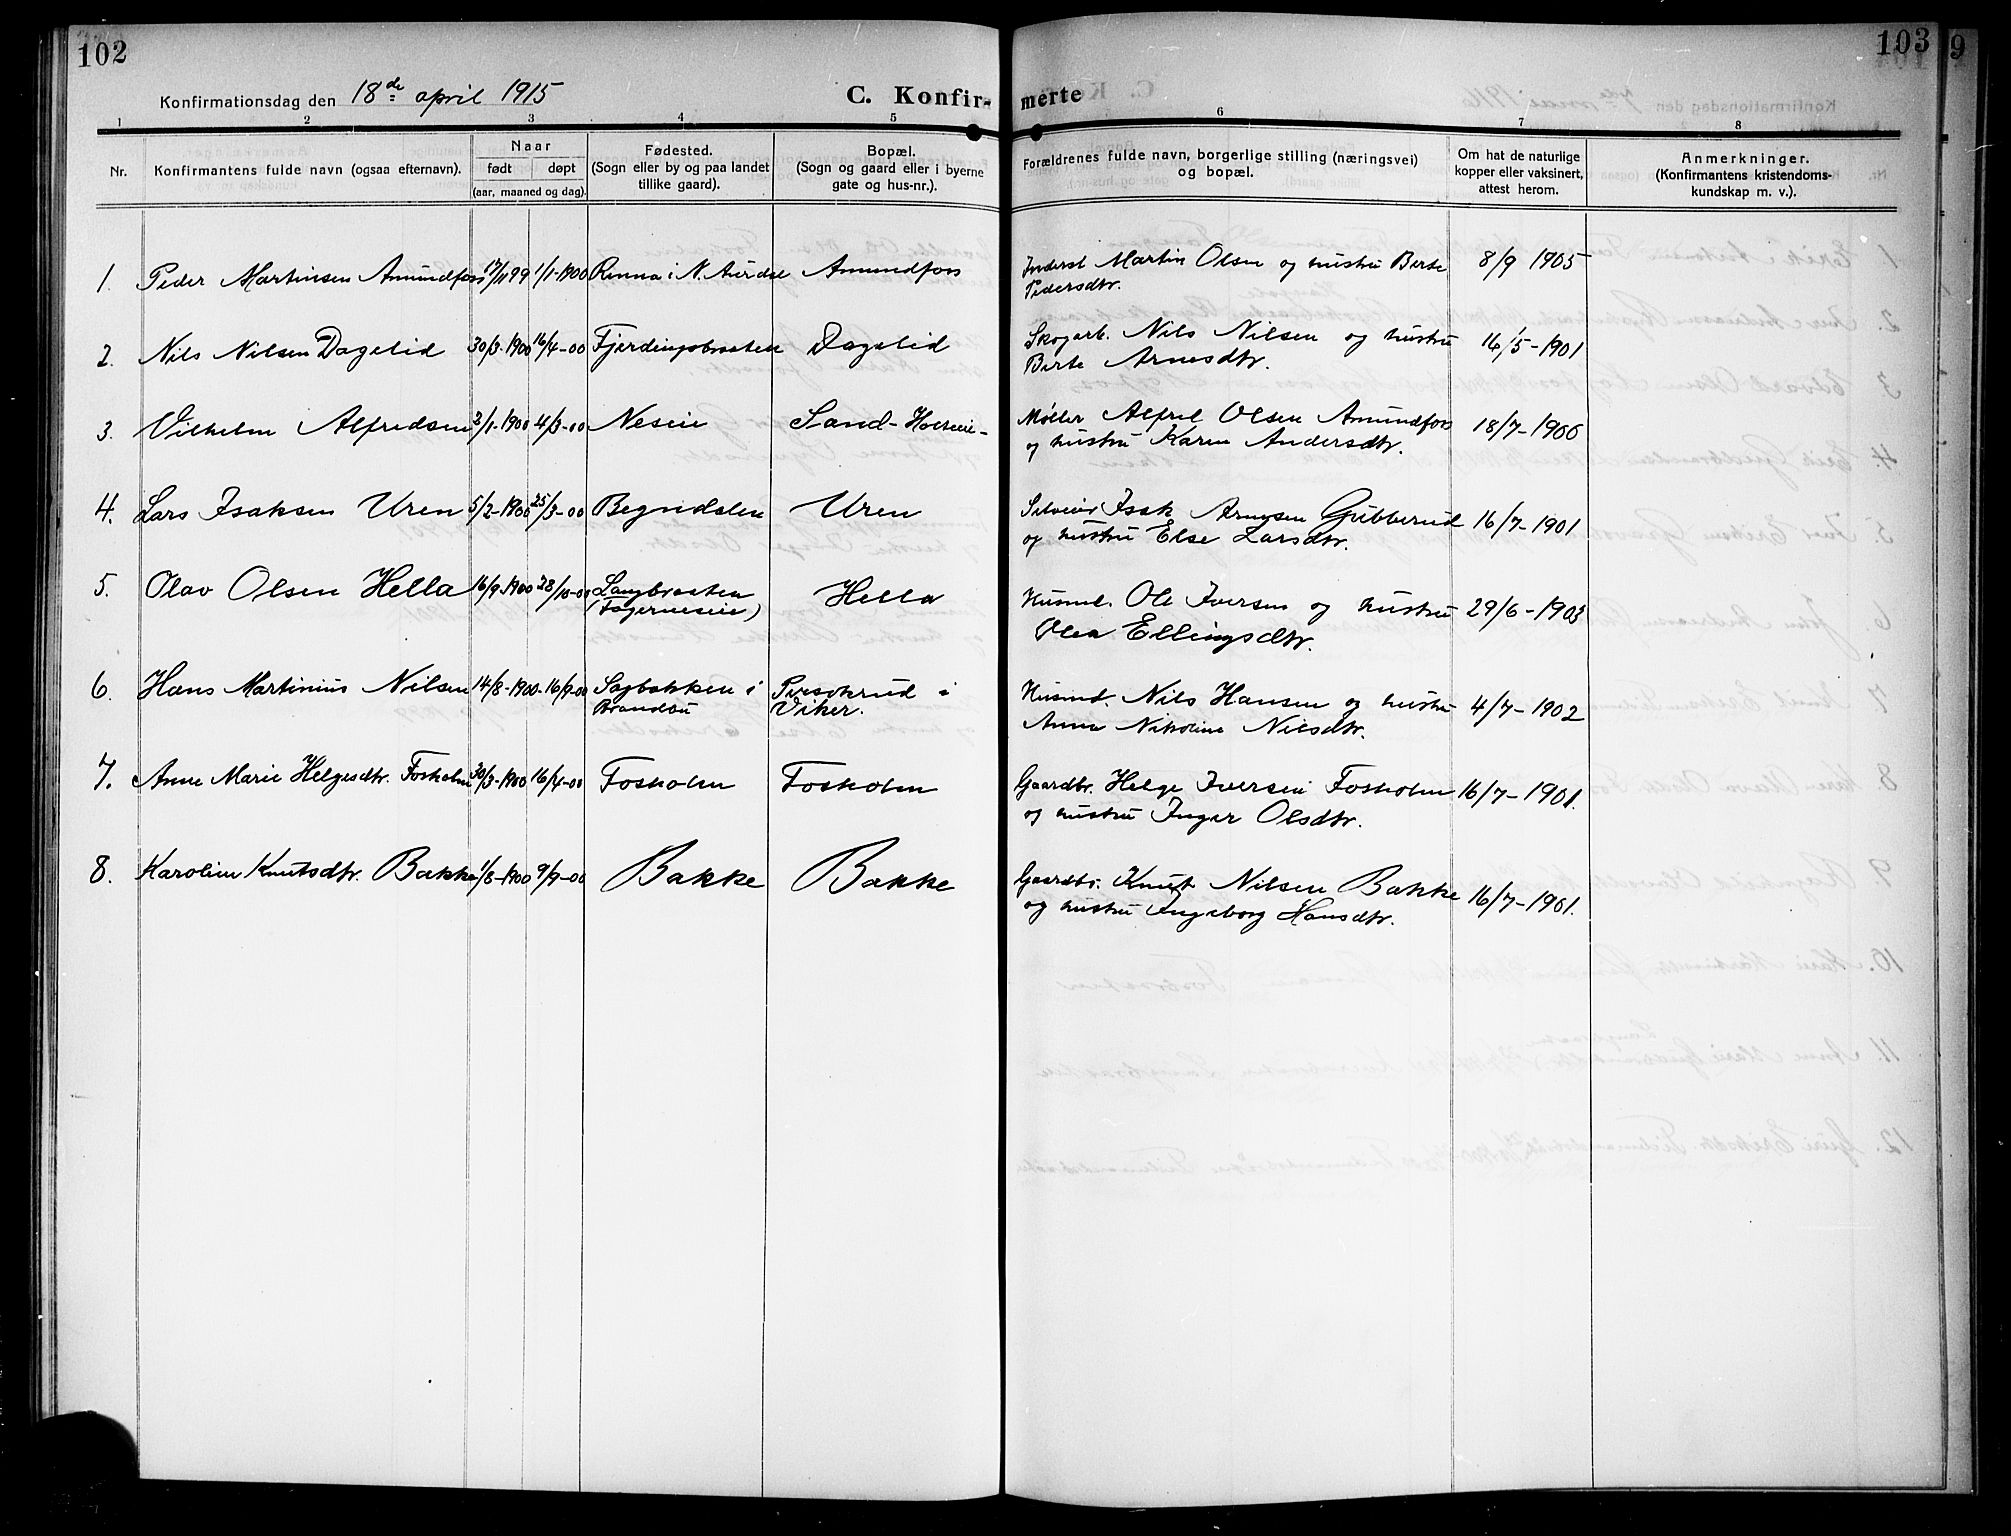 102
103
9
Konfirmationsdag den 18de april 1915
C. Konfirmerte
1 2 3 4 5 6 7 8
Nr.
Konfirmantens fulde navn (ogsaa efternavn).
Naar
født døpt
(aar, maaned og dag).
Fødested.
(Sogn eller by og paa landet
tillike gaard).
Bopæl.
(Sogn og gaard eller i byerne
gate og hus-nr.).
Forældrenes fulde navn, borgerlige stilling (næringsvei)
og bopæl.
Om hat de naturlige
kopper eller vaksinert,
attest herom.
Anmerkninger.
(Konfirmantens kristendoms-
kundskap m. v.).
1. Peder Martinsen Amundfoss 17/11 99 1/1-1900 Renna i N. Aurdal Amundfoss Inderst Martin Olsen og hustru Berte 8/9 1905
Pedersdtr.
2. Nils Nilsen Dagslid 30/3-1900 16/4-00 Fjerdingsbraaten Dagslid Skogarb. Nils Nilsen og hustru 16/5-1901
Berte Arnesdtr.
3. Vilhelm Alfredsen 3/1-1900 4/3-00 Neseie Sand- Møller Alfred Olsen Amundfoss 18/7-1900
og hustru Karen Andersdtr.
4. Lars Isaksen Uren 5/2-1900 25/3-00 Begndalen Uren Selveier Isak Arnesen Gubberud 16/7-1901
og hustru Else Larsdtr.
5. Olav Olsen Hella 16/9-1900 28/10-00 Langbraaten Hella Husmd. Ole Iversen og hustru 29/6-1903
(Fagerneseie)
Olea Ellingsdtr.
6. Hans Martinius Nilsen 14/8-1900-16/9-00 Sagbakken i i Husmd. Nils Hansen og hustru 4/7-1902
Brandbu Viker. Anne Nikoline Nilsdtr.
7. Anne Marie Helgesdtr. Fosholm 30/3-1900 16/4-00 Fosholm Fosholm Gaardbr. Helge Iversen Fosholm 16/7-1901.
og hustru Inger Olsdtr.
8. Karoline Knutsdtr. Bakke 1/8-1900 9/9-00 Bakke Bakke Gaardbr. Knut Nilsen Bakke 16/7-1901.
og hustru Ingeborg Hansdtr.